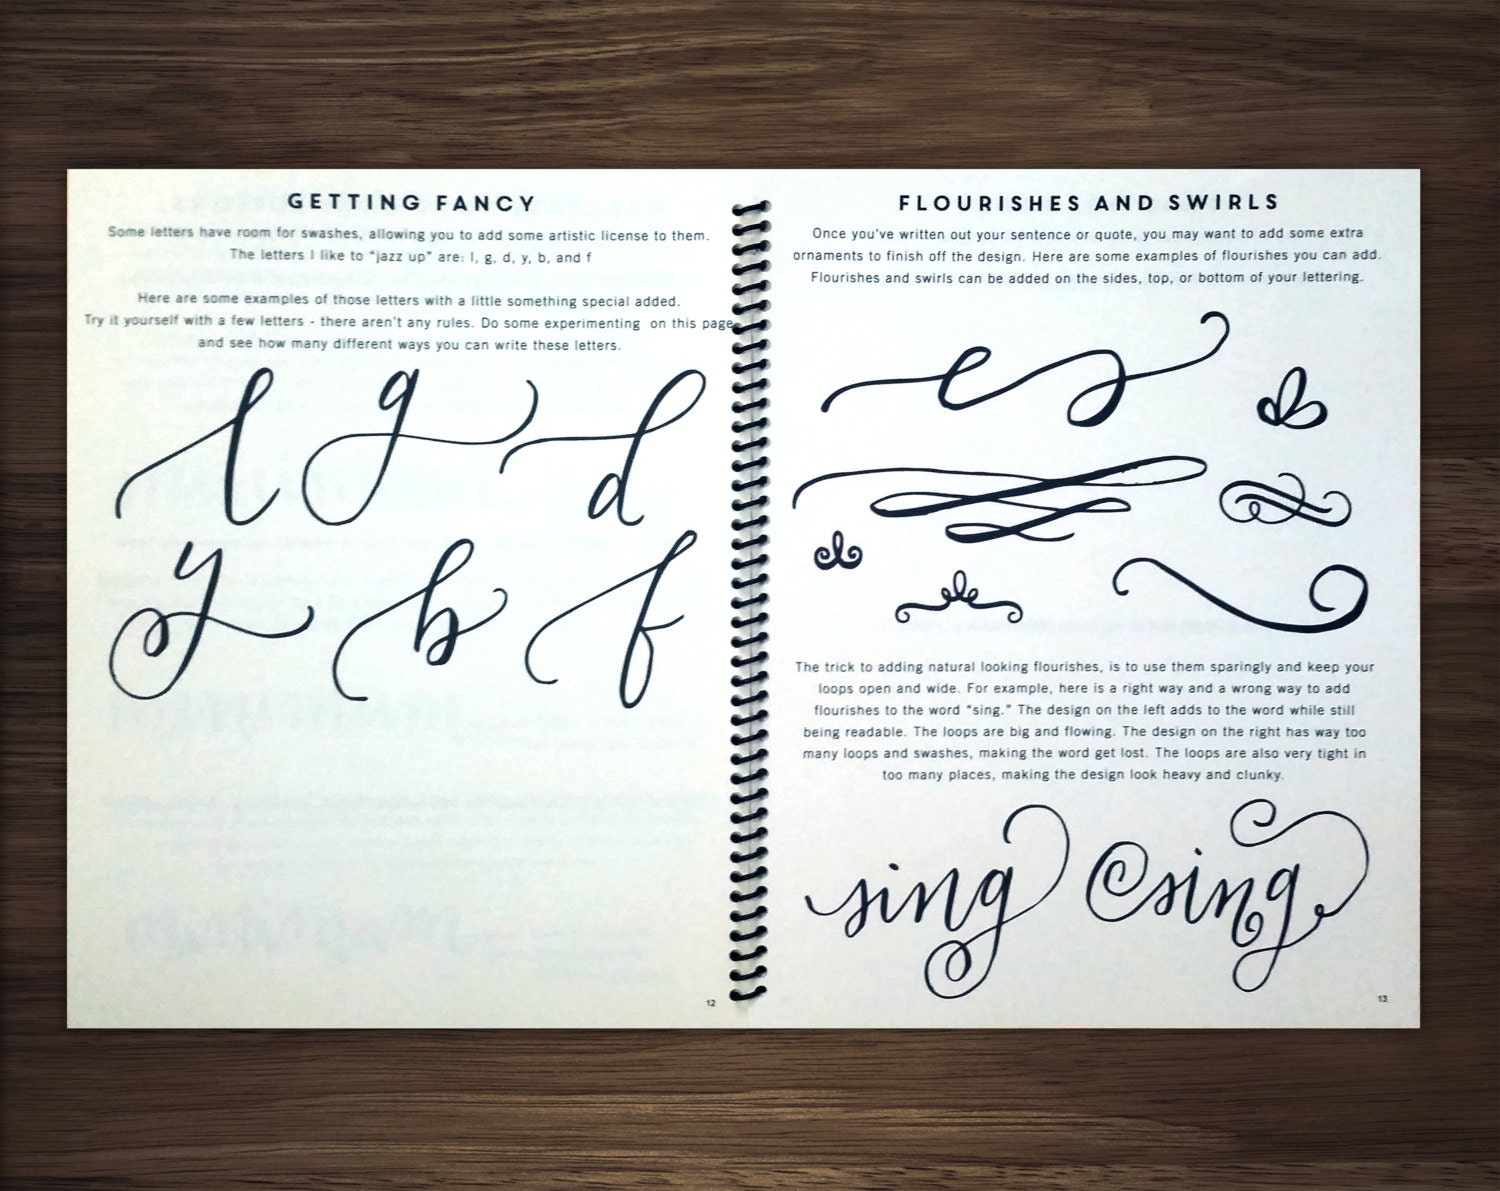 GETTING FANCY
Some letters have room for swashes, allowing you to add some artistic license to them.
The letters I like to "jazz up" are: l, g, d, y, b, and f
Here are some examples of those letters with a little something special added.
Try it yourself with a few letters - there aren't any rules. Do some experimenting on this page
and see how many different ways you can write these letters.
l g d
y b f
12
FLOURISHES AND SWIRLS
Once you've written out your sentence or quote, you may want to add some extra
ornaments to finish off the design. Here are some examples of flourishes you can add.
Flourishes and swirls can be added on the sides, top, or bottom of your lettering.
The trick to adding natural looking flourishes, is to use them sparingly and keep your
loops open and wide. For example, here is a right way and a wrong way to add
flourishes to the word "sing." The design on the left adds to the word while still
being readable. The loops are big and flowing. The design on the right has way too
many loops and swashes, making the word get lost. The loops are also very tight in
too many places, making the design look heavy and clunky.
sing sing
13